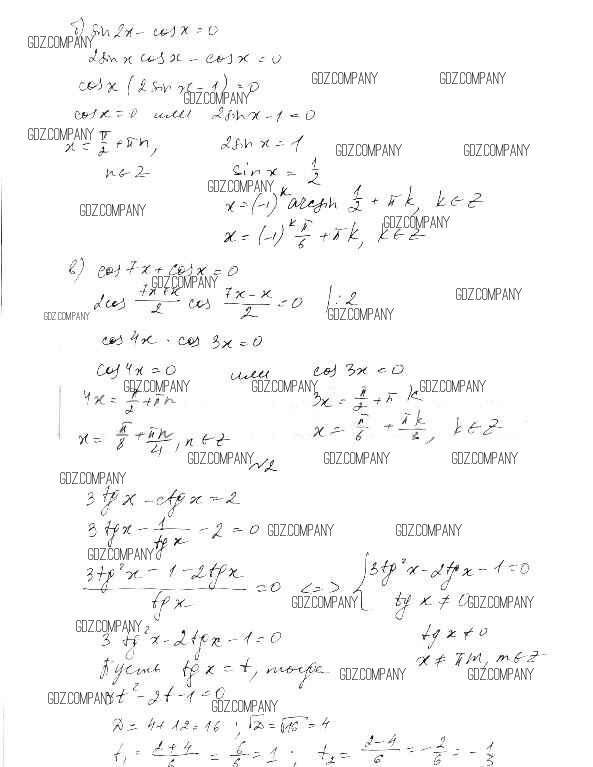 б) sin2x - cosx = 0
GDZ.COMPANY
2sinx cosx - cosx = 0
GDZ.COMPANY GDZ.COMPANY
cosx (2sinx - 1) = 0
GDZ.COMPANY
cosx = 0 или 2sinx - 1 = 0
GDZ.COMPANY
x = π/2 + πn, 2sinx = 1
GDZ.COMPANY GDZ.COMPANY
n ∈ Z sinx = 1/2
GDZ.COMPANY
x = (-1)^k arcsin 1/2 + πk, k ∈ Z
GDZ.COMPANY
GDZ.COMPANY
x = (-1)^k π/6 + πk, k ∈ Z
в) cos7x + cosx = 0
GDZ.COMPANY
2cos (7x+x)/2 cos (7x-x)/2 = 0 |:2
GDZ.COMPANY
GDZ.COMPANY GDZ.COMPANY
cos4x · cos3x = 0
cos4x = 0 или cos3x = 0
GDZ.COMPANY GDZ.COMPANY GDZ.COMPANY
4x = π/2 + πn 3x = π/2 + πk
x = π/8 + πn/4, n ∈ Z x = π/6 + πk/3, k ∈ Z
GDZ.COMPANY GDZ.COMPANY GDZ.COMPANY
№2
GDZ.COMPANY
3tgx - ctgx = 2
3tgx - 1/tgx - 2 = 0
GDZ.COMPANY GDZ.COMPANY
GDZ.COMPANY
(3tg²x - 1 - 2tgx)/tgx = 0 <=> { 3tg²x - 2tgx - 1 = 0
tgx ≠ 0
GDZ.COMPANY GDZ.COMPANY
GDZ.COMPANY
3tg²x - 2tgx - 1 = 0 tgx ≠ 0
x ≠ πm, m ∈ Z
Пусть tgx = t, тогда
GDZ.COMPANY GDZ.COMPANY
3t² - 2t - 1 = 0
GDZ.COMPANY GDZ.COMPANY
D = 4 + 12 = 16; √D = √16 = 4
t₁ = (2+4)/6 = 6/6 = 1; t₂ = (2-4)/6 = -2/6 = -1/3